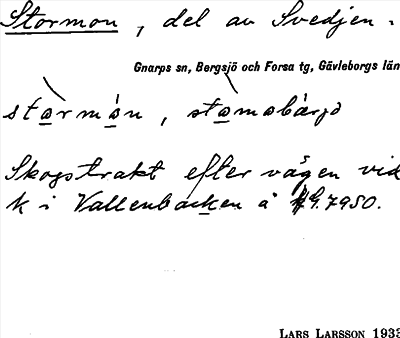 Stormon, del av Svedjen.
Gnarps sn, Bergsjö och Forsa tg, Gävleborgs län
stårmån, ståmabärjò
Skogstrakt efter vägen vid
k i Vallenbacken å G.7950.
LARS LARSSON 1933